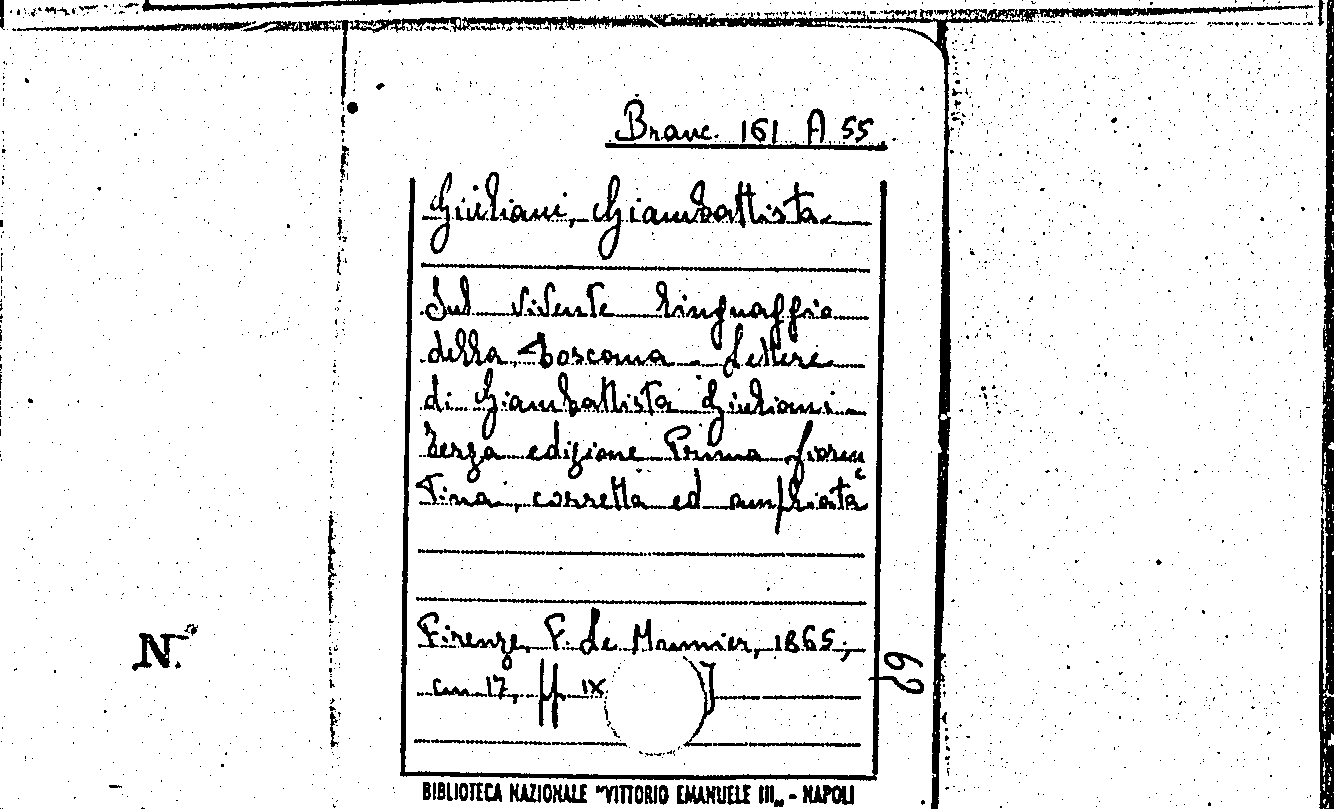 Branc. 161 A 55
Giuliani, Giambattista
Sul vivente linguaggio
della Toscana. Lettere
di Giambattista Giuliani.
Terza edizione Prima fioren
tina, corretta ed ampliata
Firenze, F. Le Monnier, 1865;
cm 17, pp IX ]
62
N.º
BIBLIOTECA NAZIONALE "VITTORIO EMANUELE III„ - NAPOLI